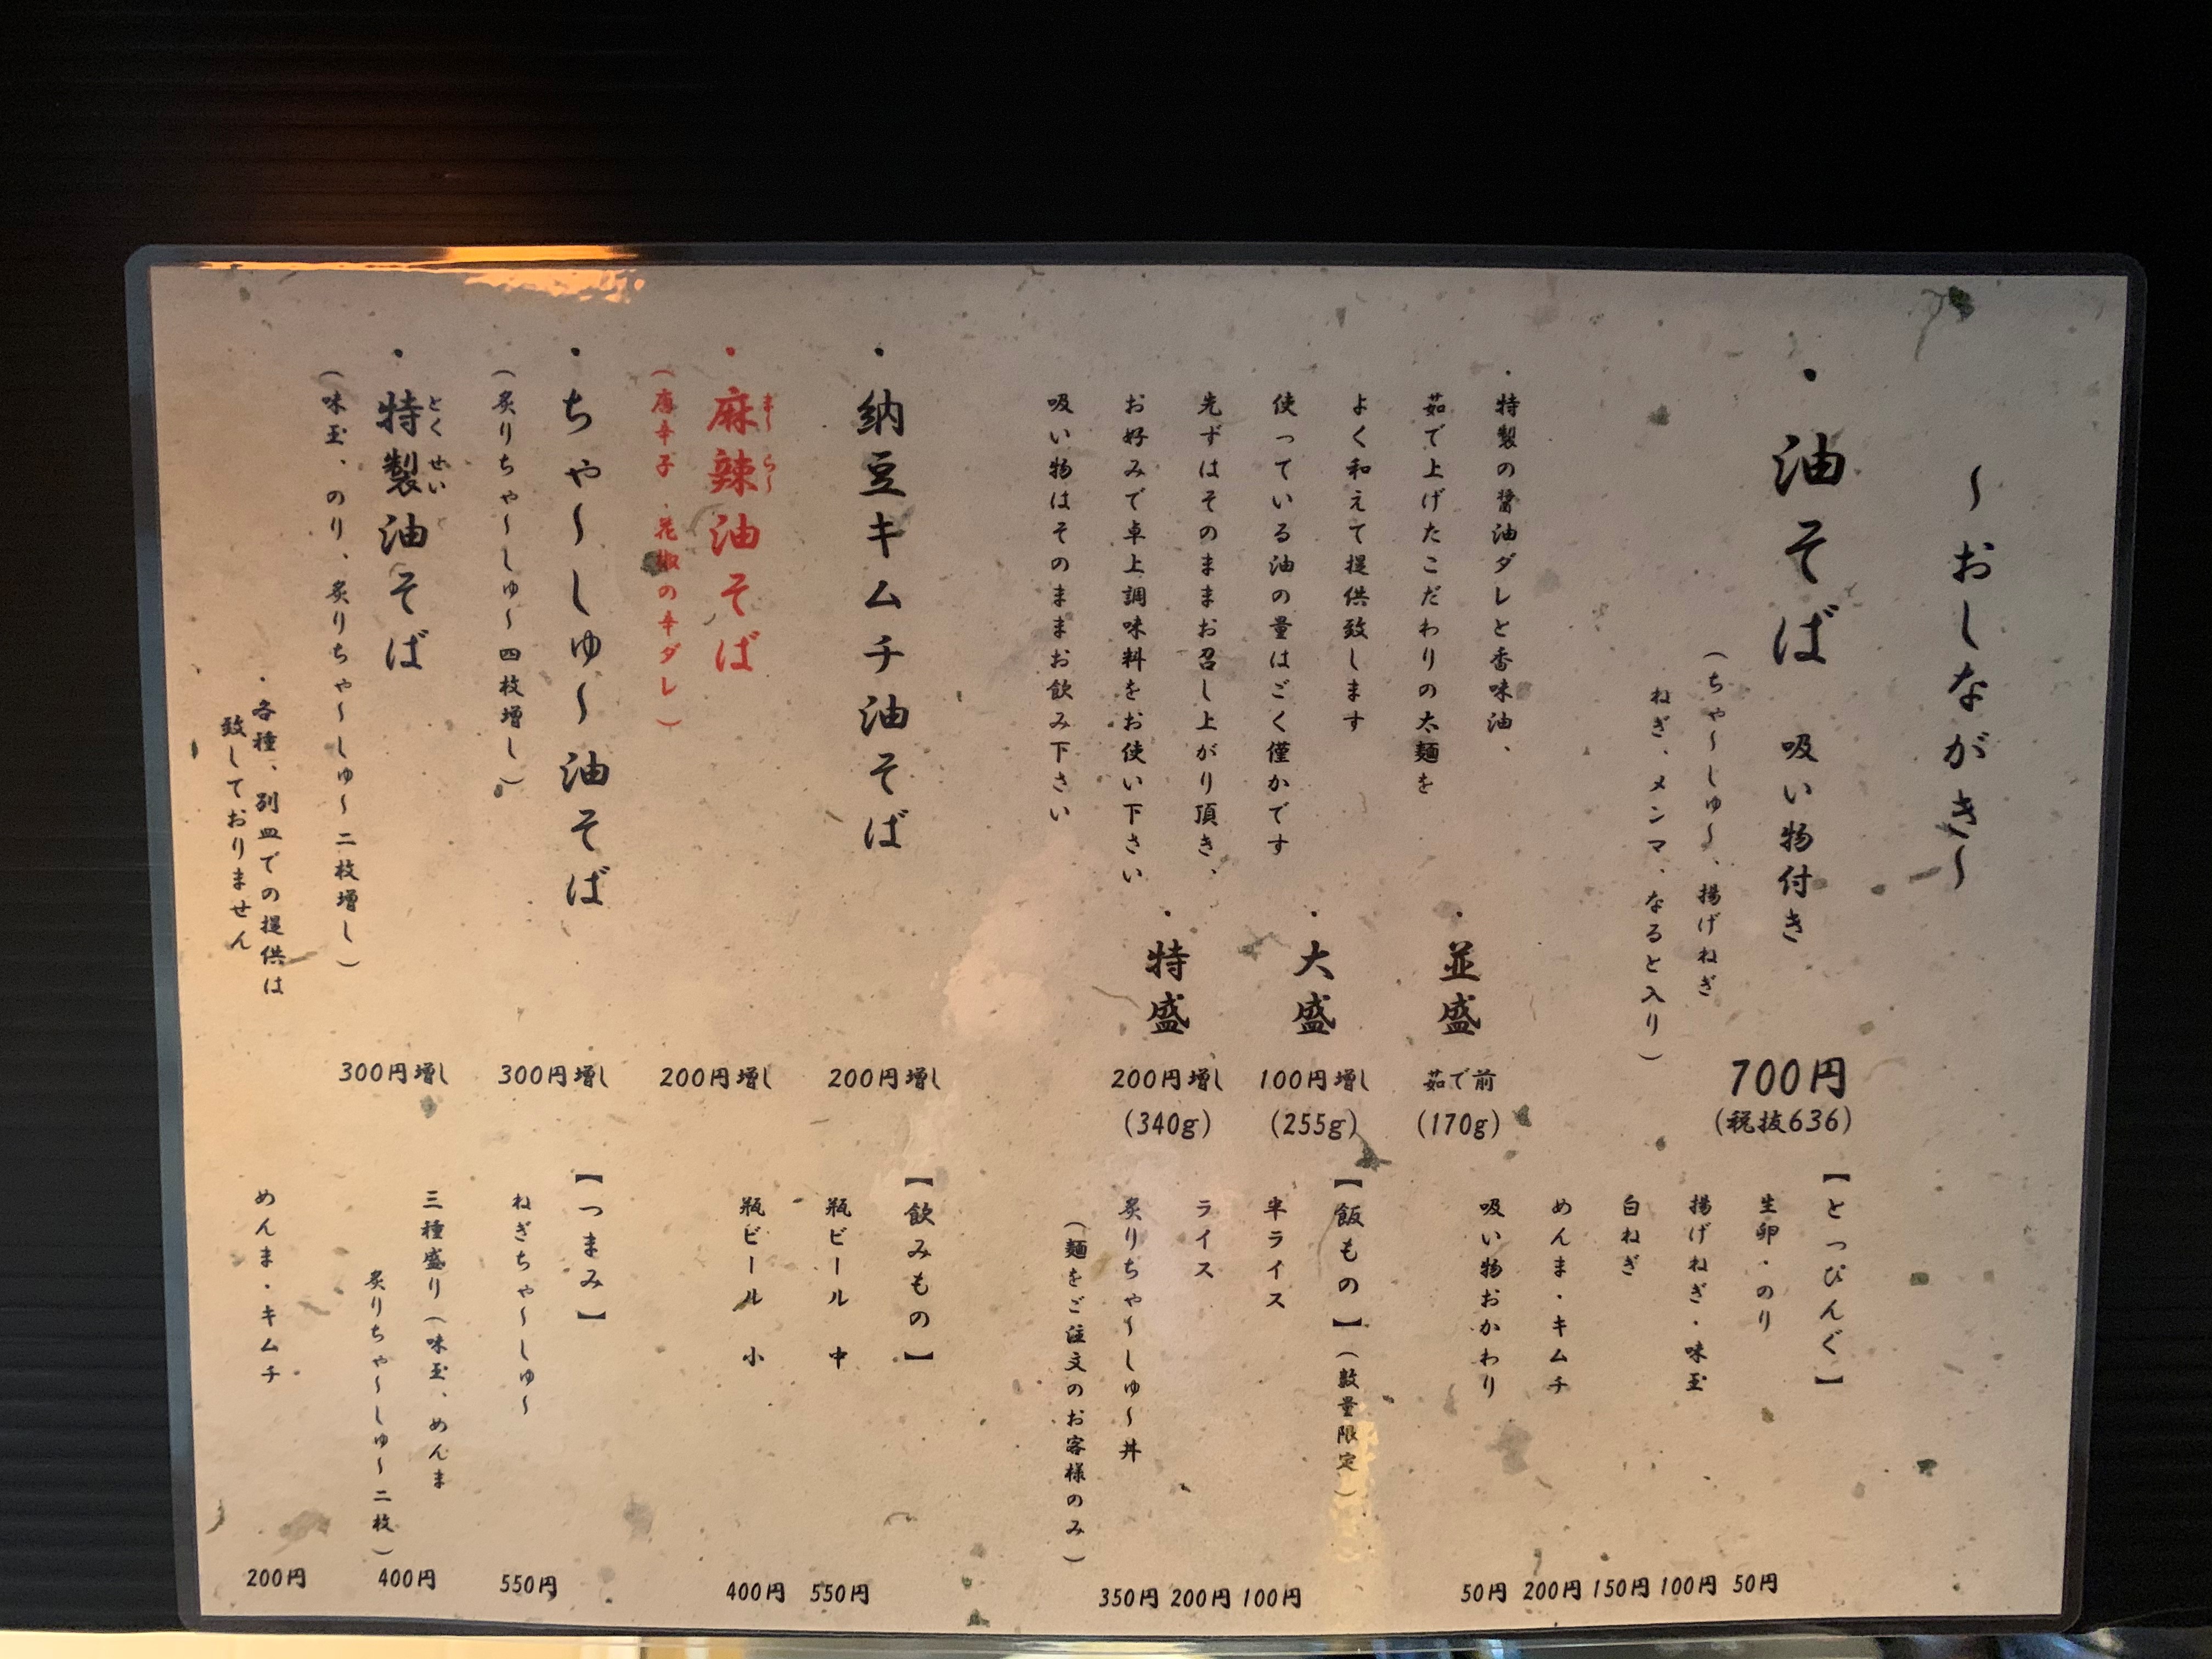 ～おしながき～
・油そば 吸い物付き
（ちゃ～しゅ～、揚げねぎ
ねぎ、メンマ、なると入り）
700円
（税抜636）
・特製の醤油ダレと香味油、
茹で上げたこだわりの太麺を
よく和えて提供致します
使っている油の量はごく僅かです
先ずはそのままお召し上がり頂き、
お好みで卓上調味料をお使い下さい
吸い物はそのままお飲み下さい
・並盛 茹で前
（170g）
・大盛 100円増し
（255g）
・特盛 200円増し
（340g）
・納豆キムチ油そば 200円増し
・麻辣油そば 200円増し
ま～ら～
（唐辛子、花椒の辛ダレ）
・ちゃ～しゅ～油そば 300円増し
（炙りちゃ～しゅ～四枚増し）
・特製油そば 300円増し
とくせい
（味玉、のり、炙りちゃ～しゅ～二枚増し）
・各種、別皿での提供は
致しておりません
【とっぴんぐ】
生卵・のり 50円
揚げねぎ・味玉 100円
白ねぎ 150円
めんま・キムチ 200円
吸い物おかわり 50円
【飯もの】（数量限定）
半ライス 100円
ライス 200円
炙りちゃ～しゅ～丼 350円
（麺をご注文のお客様のみ）
【飲みもの】
瓶ビール 中 550円
瓶ビール 小 400円
【つまみ】
ねぎちゃ～しゅ～ 550円
三種盛り（味玉、めんま
炙りちゃ～しゅ～二枚） 400円
めんま・キムチ 200円